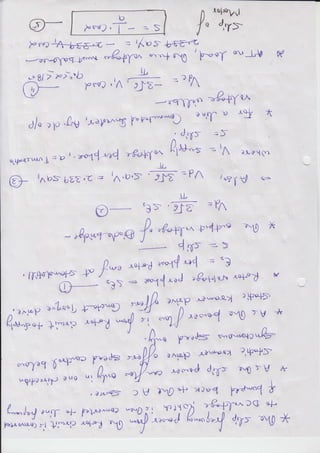 * The slip frequency power from the Rotor circuit is converted
to DC voltage, which is then converted to line frequency
& pumped back to the AC source.
* As the slip power can flow only in one direction,
Static Kramer drive offers speed control below
Synchronous speed only.
* As the power flow is from Rotor circuit to supply
Static Kramer drive offers Constant Torque drive.
Rotor voltage per phase = SE₂ — ①
E₂ = per phase Rotor emf at standstill.
S = slip
* The output voltage of Diode bridge —
Vdc = 3√6/π . SE₂ — ②
⇒ Also, Vdc = 3√6/π V₁.S = 2.339 SaV₁ — ③
where V₁ = Supply voltage per phase, a = Turns ratio
S = slip.
* For a line Commutated Inverter, Avg. dc o/p
voltage will be —
Vdc = - 3√6/π V₁ cosα — ④
90° < α < 180°
* AT no load, the two voltages must balance —
2.339 SaV₁ = - 2.339 V₁ cosα
S = - 1/a . cosα — ⑤
Slip of
Motor